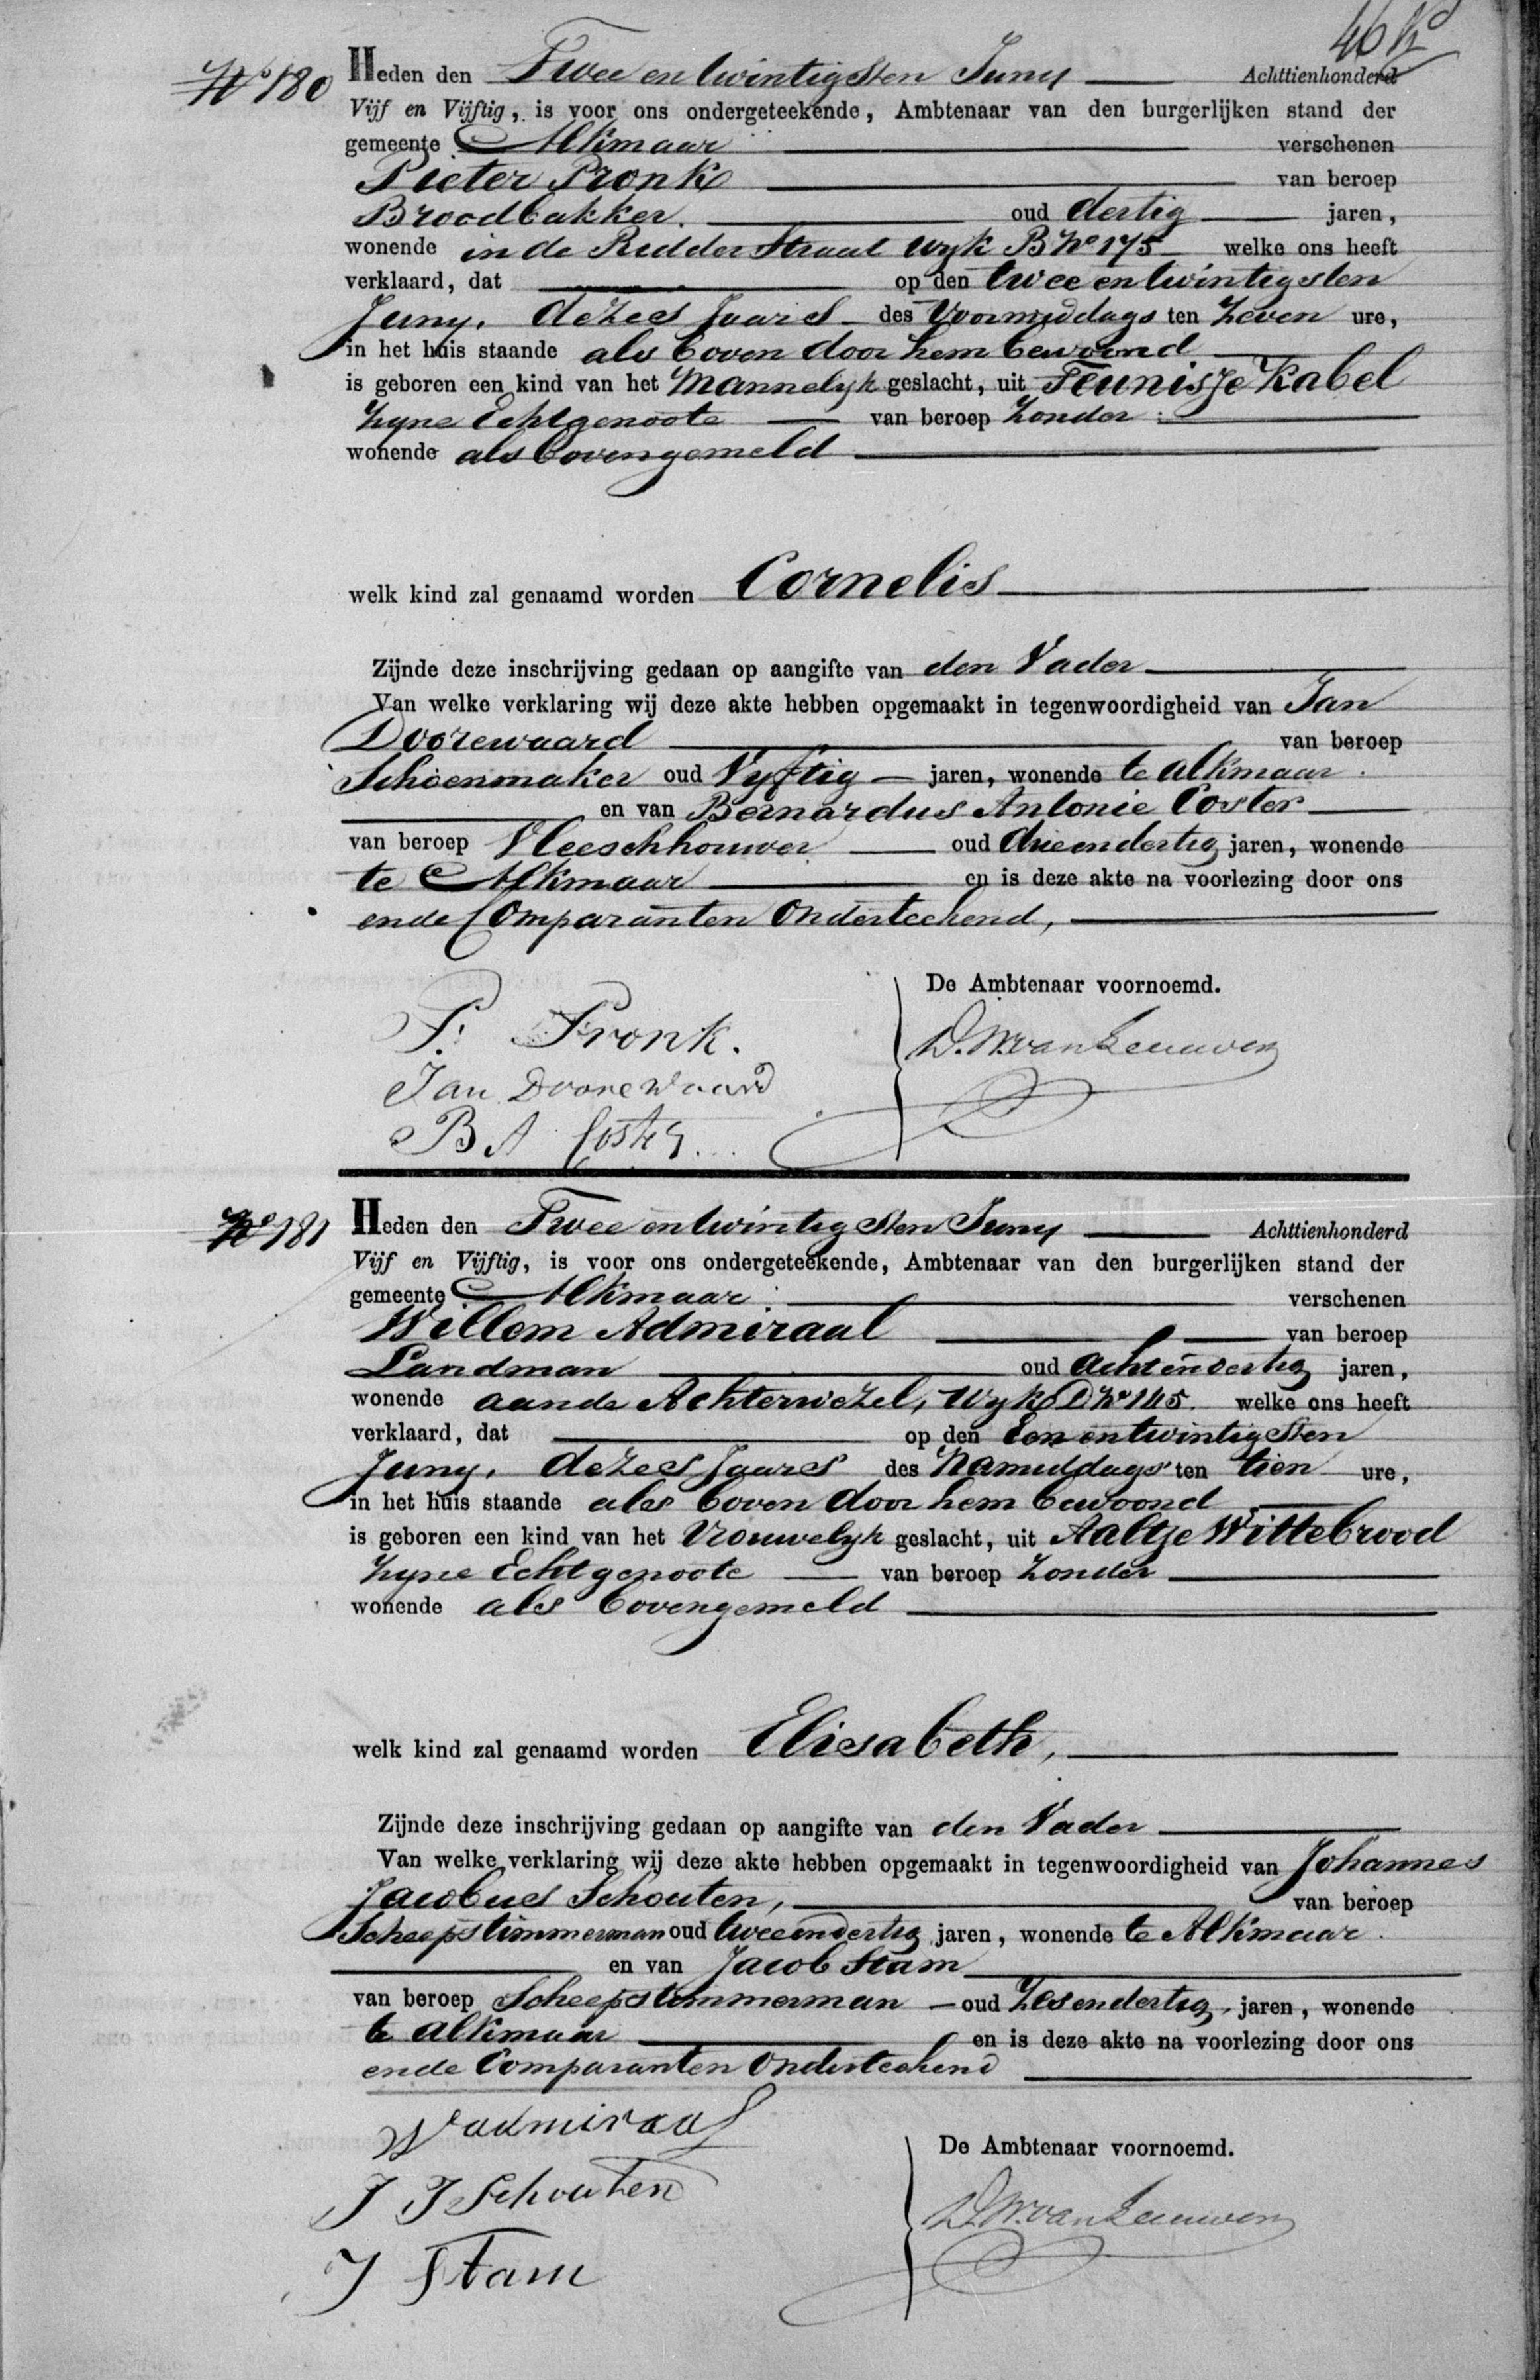 46 
No 180
Heden den Twee en twintigsten Juny Achttienhonderd
Vijf en Vijftig, is voor ons ondergeteekende, Ambtenaar van den burgerlijken stand der
gemeente Alkmaar verschenen
Pieter Pronk van beroep
Broodbakker. oud dertig jaren,
wonende in de Ridder Straat Wyk B No 175 welke ons heeft
verklaard, dat op den twee en twintigsten
Juny, dezes Jaars des Voormiddags ten Zeven ure,
in het huis staande als boven door hem bewoond
is geboren een kind van het Mannelyk geslacht, uit Teunisje Kabel
Zyne Echtgenoote van beroep Zonder
wonende als bovengemeld
welk kind zal genaamd worden Cornelis
Zijnde deze inschrijving gedaan op aangifte van den Vader
Van welke verklaring wij deze akte hebben opgemaakt in tegenwoordigheid van Jan
Doorewaard van beroep
Schoenmaker oud Vyftig jaren, wonende te Alkmaar.
en van Bernardus Antonie Coster
van beroep Vleeschhouwer oud drieendertig jaren, wonende
te Alkmaar en is deze akte na voorlezing door ons
ende Comparanten Onderteekend,
De Ambtenaar voornoemd.
P. Pronk.
D. W. van Leeuwen
Jan Doorewaard
B A Coster
No 181
Heden den Twee en twintigsten Juny Achttienhonderd
Vijf en Vijftig, is voor ons ondergeteekende, Ambtenaar van den burgerlijken stand der
gemeente Alkmaar verschenen
Willem Admiraal van beroep
Landman oud achtendertig jaren,
wonende aande Achterwezel, Wyk D No 145. welke ons heeft
verklaard, dat op den Een en twintigsten
Juny, dezes Jaares des Namiddags ten tien ure,
in het huis staande als boven door hem bewoond
is geboren een kind van het Vrouwelyk geslacht, uit Aaltje Wittebrood
Zyne Echtgenoote van beroep Zonder
wonende als bovengemeld
welk kind zal genaamd worden Elisabeth,
Zijnde deze inschrijving gedaan op aangifte van den Vader
Van welke verklaring wij deze akte hebben opgemaakt in tegenwoordigheid van Johannes
Jacobus Schouten, van beroep
Scheepstimmerman oud tweeendertig jaren, wonende te Alkmaar.
en van Jacob Stam
van beroep Scheepstimmerman oud Zesendertig jaren, wonende
te Alkmaar en is deze akte na voorlezing door ons
ende Comparanten Onderteekend
W admiraal
De Ambtenaar voornoemd.
J J Schouten
D. W. van Leeuwen
J Stam